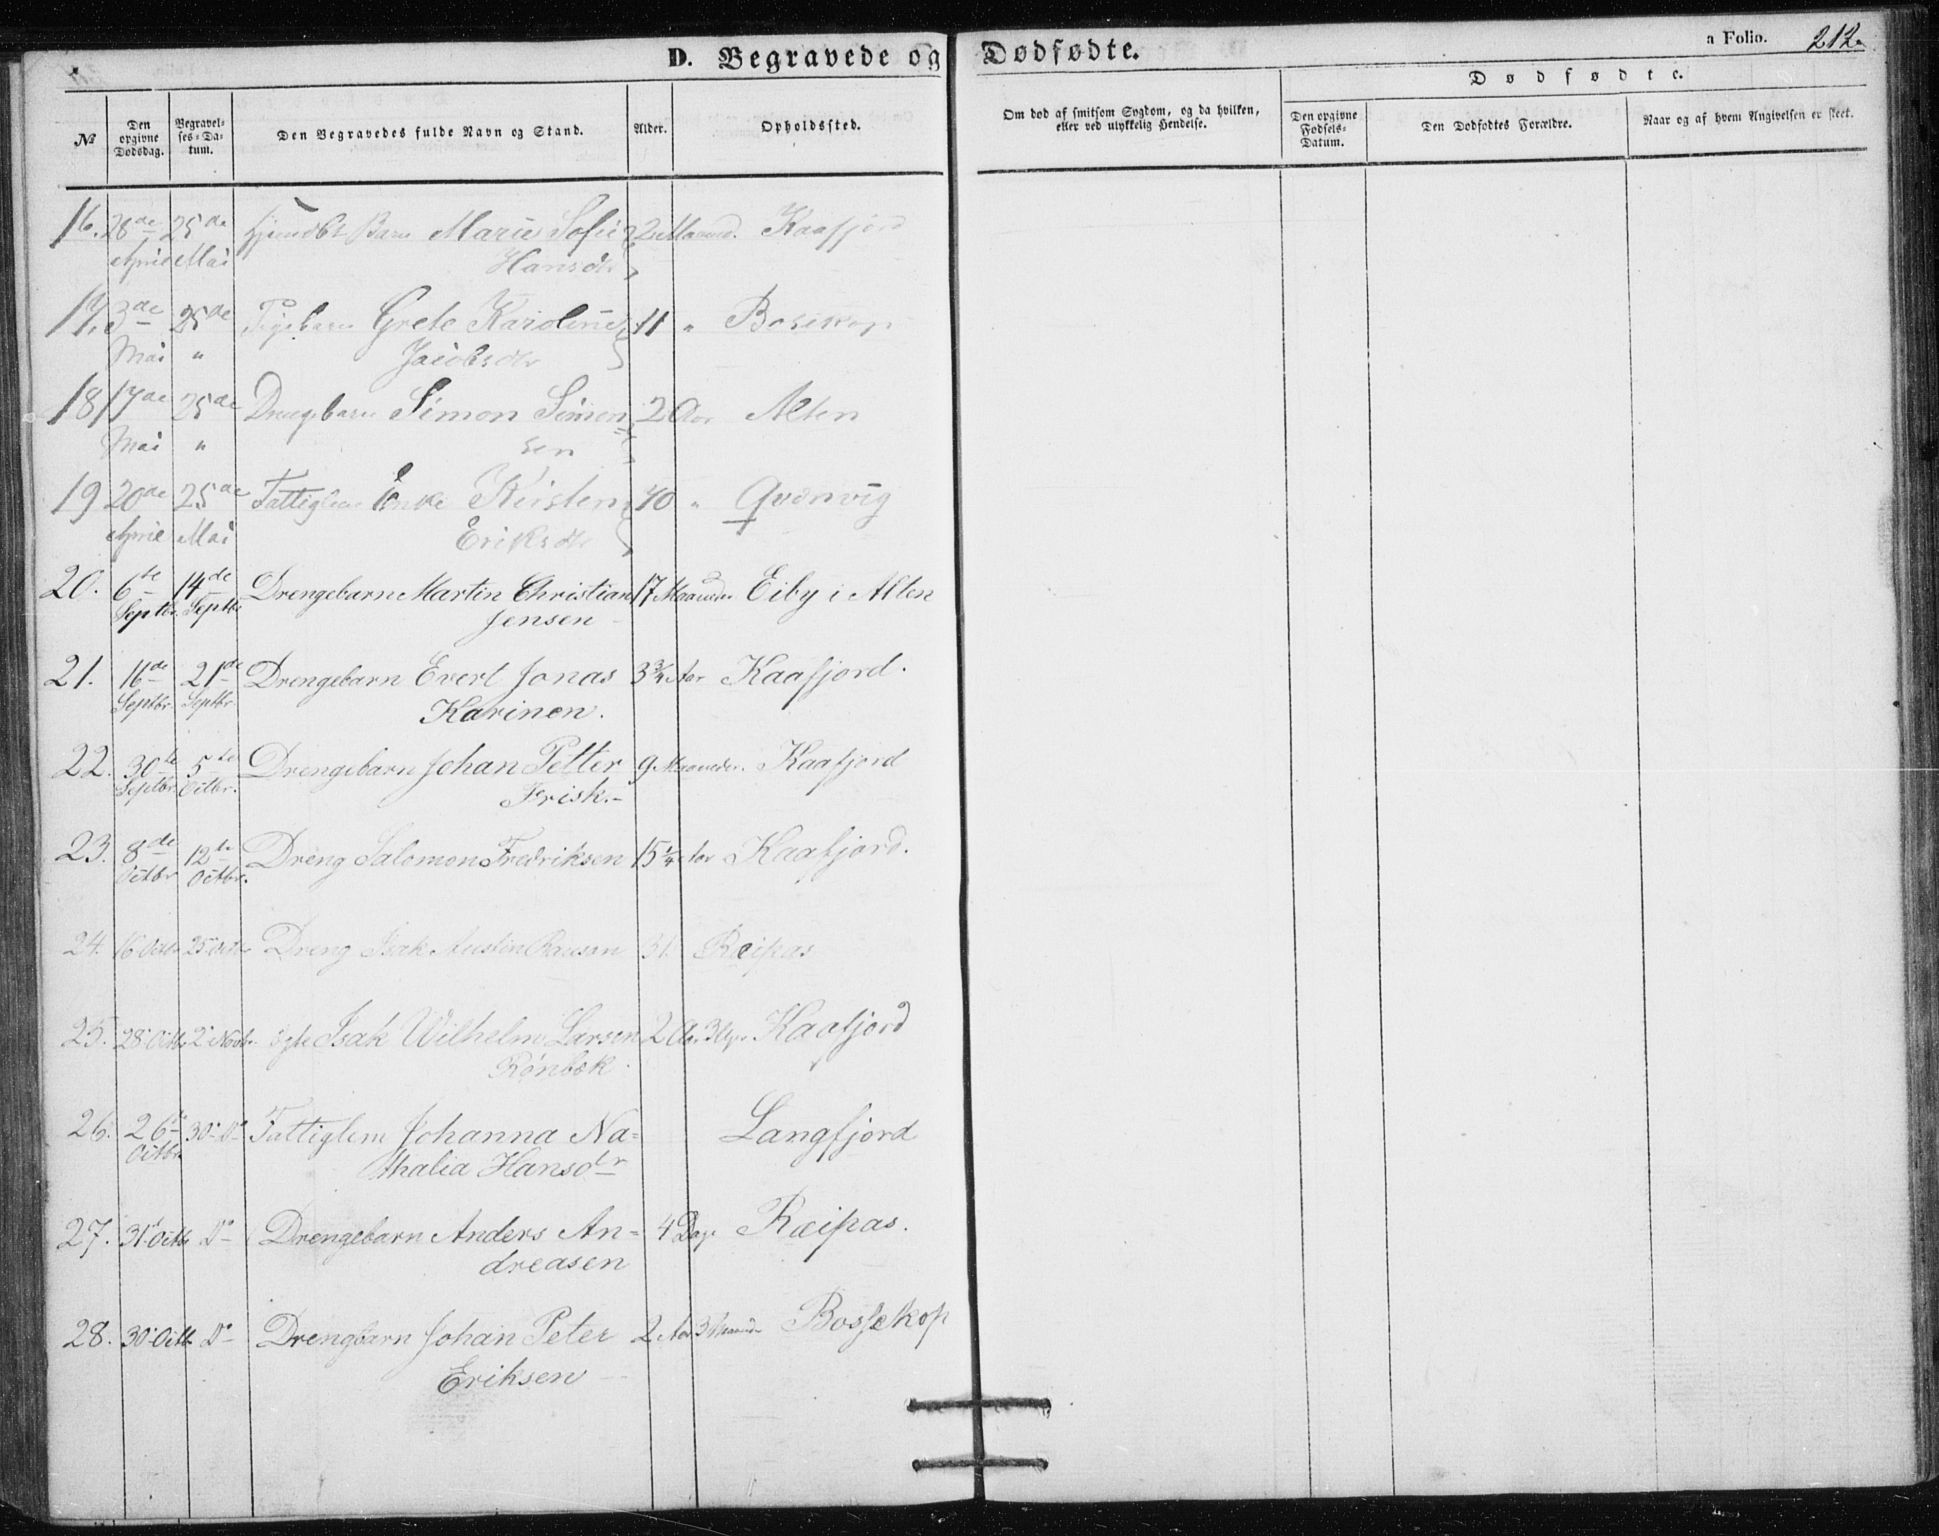 D. Begravede og Dødfødte.
a Folio. 212.
№
Den opgivne Dødsdag.
Begravelses-Datum.
Den Begravedes fulde Navn og Stand.
Alder.
Opholdssted.
Om død af smitsom Sygdom, og da hvilken, eller ved ulykkelig Hendelse.
Dødfødte.
Den opgivne Fødsels-Datum.
Den Dødfødtes Forældre.
Naar og af hvem Angivelsen er skeet.
16. 28de 25de Hjemdbt Barn Marie Sofie 2 Maaned. Kaafjord
April Mai Hansdr
17. 3de 25de Pigebarn Grete Karoline 11 " Bosekop
Mai " Jacobsdr
18 17de 25de Drengebarn Simon Simon= 2 Aar Alten
Mai " sen
19 20de 25de Fattiglem Enke Kirsten 70 " Qvænvig
April Mai Eriksdr
20. 6te 14de Drengebarn Martin Christian 17 Maaneder Eiby i Alten
Septbr. Septbr. Jensen
21. 16de 21de Drengebarn Evert Jonas 3¾ Aar Kaafjord.
Septbr. Septbr. Karinen.
22. 30te 5te Drengebarn Johan Petter 9 Maaneder. Kaafjord
Septbr. Octbr. Frisk.
23. 8de 12te Dreng Salomon Fredriksen 15¼ Aar Kaafjord.
Octbr Octbr.
24. 16 Octbr 25 Octbr Dreng Isak 31. Reipas
25. 28. Octbr 2. Novbr. Isak Wilhelm Larsen 2 Aar Kaafjord
Rønbek.
26. 26de 30. Do Fattiglem Johanna Na= Langfjord
Octbr. thalia Hansdr
27. 31. Octbr Do Drengebarn Anders An= 4 Dage Reipas.
dreasen
28. 30. Octbr Do Drengbarn Johan Peter 2 Aar 3 Maaneder Bossekop
Eriksen